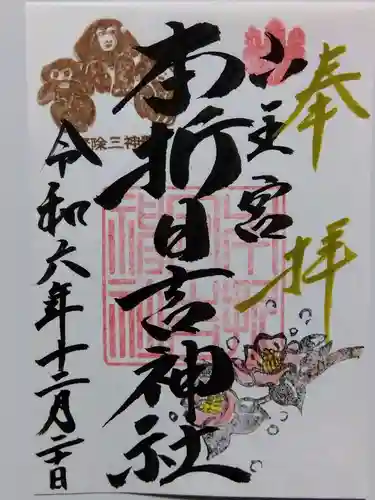 奉拝
山王宮
本折日吉神社
令和六年十二月二十日
除三神